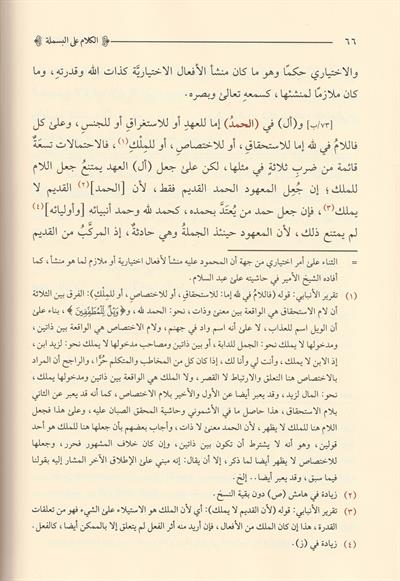 ٦٦ ﴿ الكلام على البسملة ﴾
والاختياري حكمًا وهو ما كان منشأ الأفعال الاختياريَّة كذات الله وقدرته، وما
كان ملازمًا لمنشئها، كسمعه تعالىٰ وبصره.
[٧٣/ب] و(أل) في (الحمدُ) إما للعهدِ أو للاستغراقِ أو للجنسِ، وعلىٰ كل
فاللامُ في لله إما للاستحقاقِ، أو للاختصاصِ، أو للمِلْكِ(١)، فالاحتمالات تسعَةٌ
قائمة من ضربِ ثلاثةٍ في مثلها، لكن علىٰ جعل (أل) للعهد يمتنعُ جعل اللام
للملك؛ إن جُعِل المعهود الحمد القديم فقط، لأن [الحمد](٢) القديم لا
يملك(٣)، فإن جعل حمد من يُعتَدَّ بحمده، كحمد لله وحمد أنبيائه [وأوليائه](٤)
لم يمتنع ذلك، لأن المعهود حينئذ الجملةُ وهي حادثةٌ، إذ المركَّبُ من القديم
= الثناء علىٰ أمر اختياري من جهة أن المحمود عليه منشأ لأفعال اختيارية أو ملازم لما هو منشأ، كما
أفاده الشيخ الأمير في حاشيته علىٰ عبد السلام.
(١) تقرير الأنبابي: قوله (فاللامُ في لله إما: للاستحقاق، أو للاختصاص، أو للمِلكِ): الفرق بين الثلاثة
أن لام الاستحقاق هي الواقعة بين معنىٰ وذات، نحو: الحمد لله، و﴿وَيْلٌ لِّلْمُطَفِّفِينَ﴾، بناء علىٰ
أن الويل اسم للعذاب، لا علىٰ أنه اسم واد في جهنم، ولام الاختصاص هي الواقعة بين ذاتين
ومدخولها لا يملك نحو: الجمل للدابة، أو بين ذاتين ومصاحب مدخولها لا يملك نحو: لزيد ابن،
إذ الابن لا يملك، وأنت لي وأنا لك، إذا كان كل من المخاطب والمتكلم حُرًّا، والراجح أن المراد
بالاختصاص هنا التعلق والارتباط لا القصر، ولا الملك هي الواقعة بين ذاتين ومدخولها يملك،
نحو: المال لزيد، وقد يعبر أيضا عن الأول والأخير بلام الاختصاص، كما أنه قد يعبر عن الثاني
بلام الاستحقاق، هذا حاصل ما في الأشموني وحاشية المحقق الصبان عليه، وعلىٰ هذا فجعل
اللام هنا للملك لا يظهر، لأن الحمد معنىٰ لا ذات، وأجاب بعضهم بأن جعلها هنا للملك هو أحد
قولين، وهو أنه لا يشترط أن تكون بين ذاتين، وإن كان خلاف المشهور فحرر، وجعلها
للاختصاص لا يظهر أيضا لما ذكر، إلا أن يقال: إنه مبني علىٰ الإطلاق الآخر المشار إليه بقولنا
فيما سبق، وقد يعبر أيضا... إلخ.
(٢) زيادة في هامش (ص) دون بقية النسخ.
(٣) تقرير الأنبابي: قوله (لأن القديم لا يملك): أي لأن الملك هو الاستيلاء علىٰ الشيء فهو من تعلقات
القدرة، هذا إن كان الملك من الأفعال، فإن أريد منه أثر الفعل لم يتعلق إلا بالممكن أيضا، كالفعل.
(٤) زيادة في (ز).